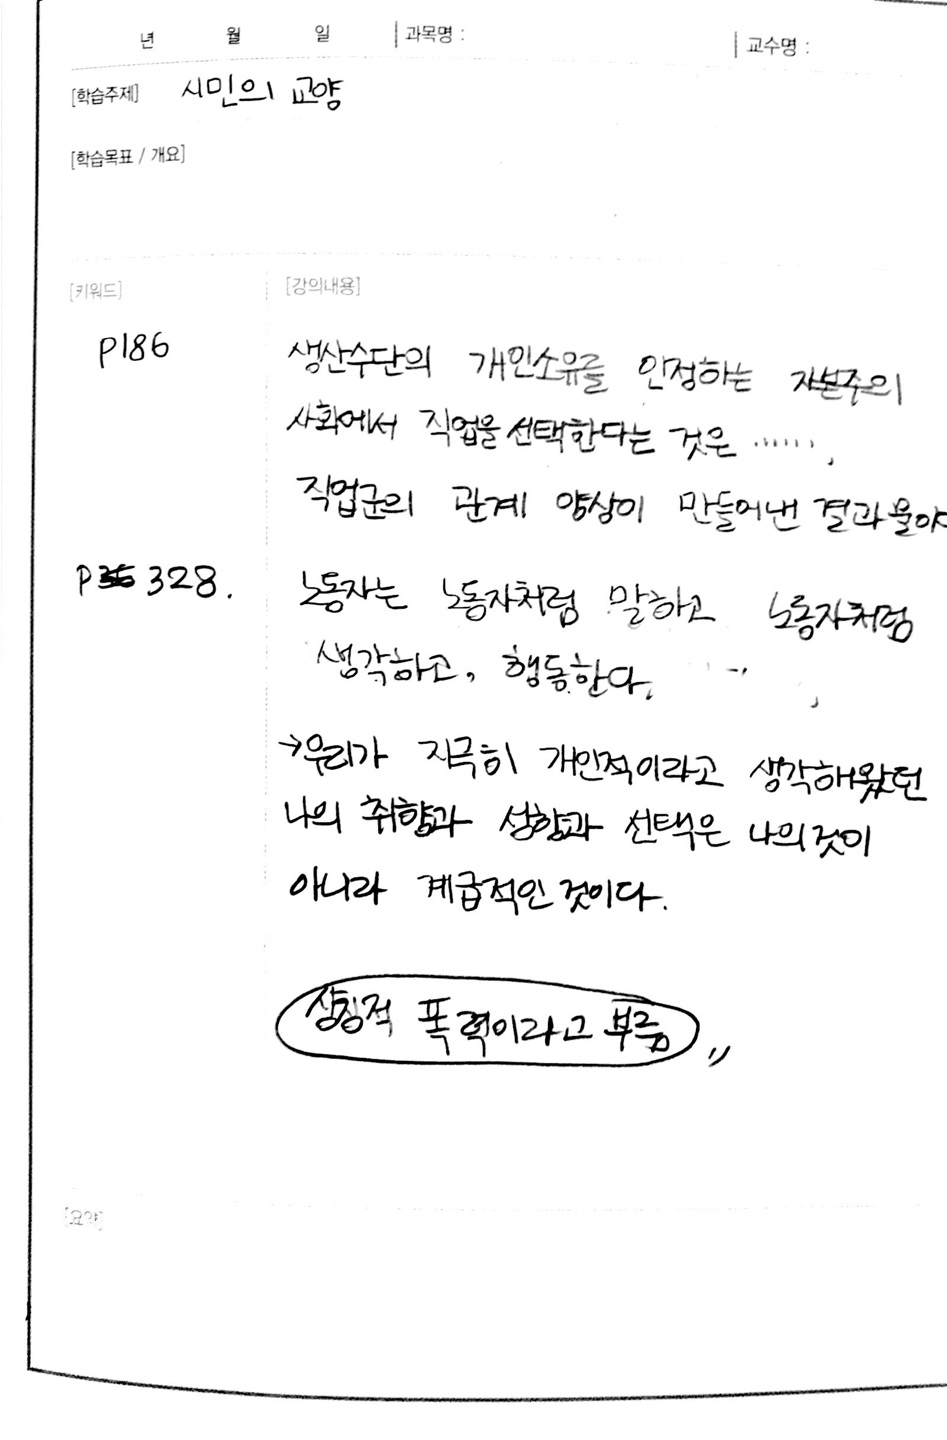 년 월 일 과목명 : 교수명 :
[학습주제] 시민의 교양
[학습목표 / 개요]
[키워드] [강의내용]
P186 생산수단의 개인소유를 인정하는 자본주의
사회에서 직업을 선택한다는 것은 ……,
직업군의 관계 양상이 만들어낸 결과물이야
P 328. 노동자는 노동자처럼 말하고 노동자처럼
생각하고, 행동한다.
→우리가 지극히 개인적이라고 생각해왔던
나의 취향과 성향과 선택은 나의것이
아니라 계급적인 것이다.
상징적 폭력이라고 부름
[요약]